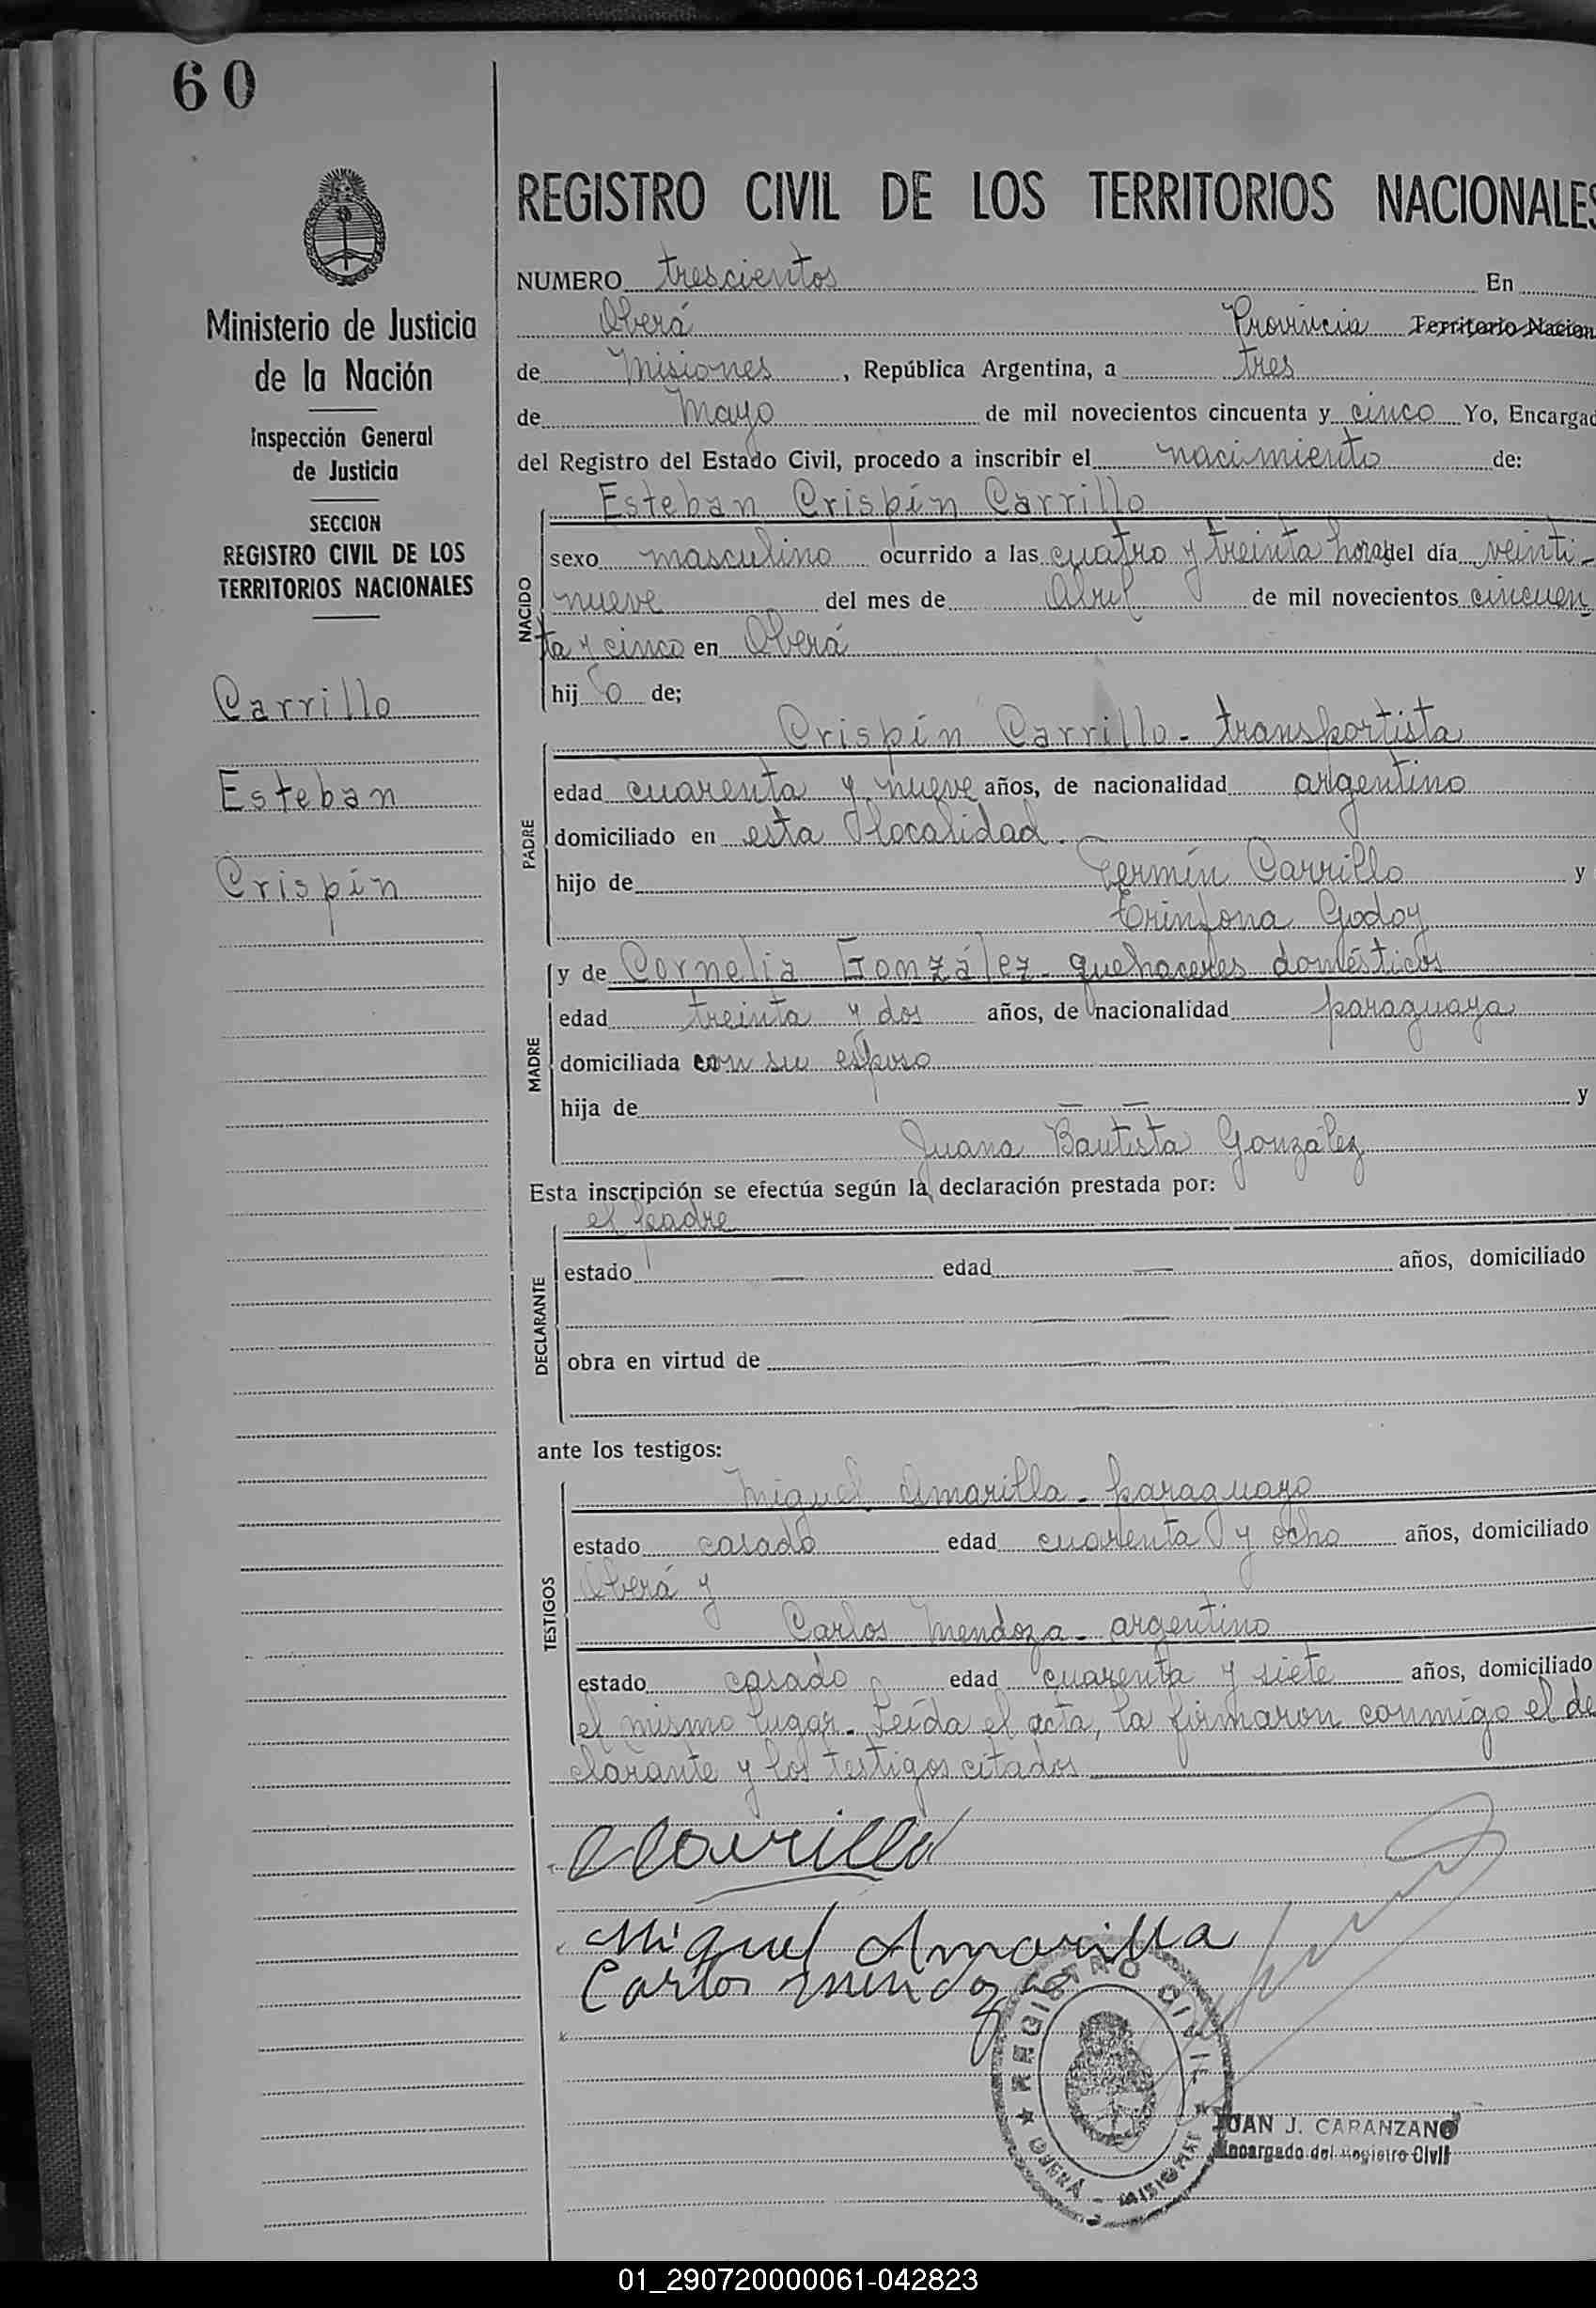 60
Ministerio de Justicia
de la Nación
Inspección General
de Justicia
SECCION
REGISTRO CIVIL DE LOS
TERRITORIOS NACIONALES
Carrillo
Esteban
Crispín
REGISTRO CIVIL DE LOS TERRITORIOS NACIONALES
NUMERO trescientos En
Oberá Provincia Territorio Nacion
de Misiones, República Argentina, a tres
de Mayo de mil novecientos cincuenta y cinco Yo, Encargad
del Registro del Estado Civil, procedo a inscribir el nacimiento de:
NACIDO
Esteban Crispín Carrillo
sexo masculino ocurrido a las cuatro y treinta horas del día veinti-
nueve del mes de Abril de mil novecientos cincuen
ta y cinco en Oberá
hijo de;
PADRE
Crispín Carrillo - transportista
edad cuarenta y nueve años, de nacionalidad argentino
domiciliado en esta localidad.
hijo de Fermín Carrillo y
Trinfona Godoy
MADRE
y de Cornelia González - quehaceres domésticos
edad treinta y dos años, de nacionalidad paraguaya
domiciliada con su esposo
hija de — — y
Juana Bautista González
Esta inscripción se efectúa según la declaración prestada por:
DECLARANTE
el padre
estado — edad — años, domiciliado
— —
obra en virtud de — —
— —
ante los testigos:
TESTIGOS
Miguel Amarilla - paraguayo
estado casado edad cuarenta y ocho años, domiciliado
Oberá y
Carlos Mendoza - argentino
estado casado edad cuarenta y siete años, domiciliado
el mismo lugar. Leída el acta, la firmaron conmigo el de
clarante y los testigos citados
CCarrillo
Miguel Amarilla
Carlos Mendoza
REGISTRO CIVIL
OBERÁ - MISIONES
JUAN J. CARANZANO
Encargado del Registro Civil
01_290720000061-042823